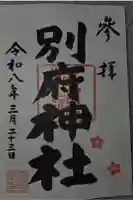 參拜
別府神社
令和八年二月二十三日